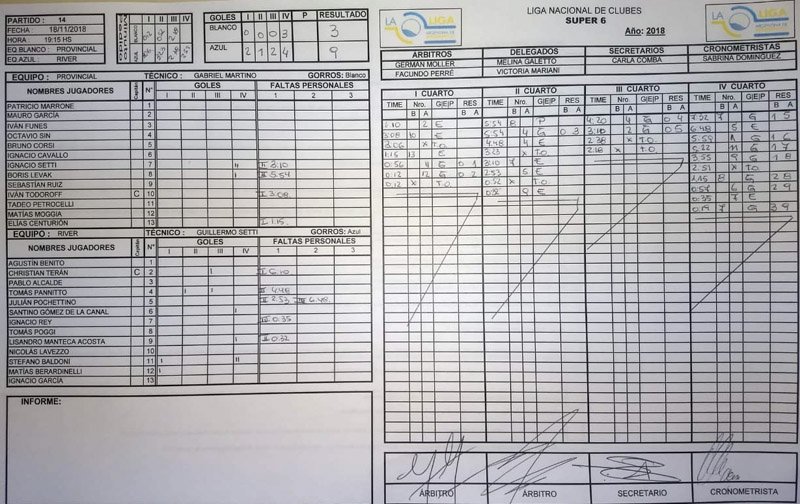 PARTIDO : 14
FECHA : 18/11/2018
HORA : 19:15 HS
EQ.BLANCO : PROVINCIAL
EQ.AZUL : RIVER
I II III IV
BLANCO
AZUL
GOLES I II III IV P RESULTADO
BLANCO 0 0 0 3 3
AZUL 2 1 2 4 9
LIGA NACIONAL DE CLUBES
SUPER 6
Año: 2018
LA LIGA
LA LIGA
ÁRBITROS DELEGADOS SECRETARIOS CRONOMÉTRISTAS
GERMÁN MOLLER MELINA GALETTO CARLA COMBA SABRINA DOMINGUEZ
FACUNDO PERRÉ VICTORIA MARIANI
EQUIPO : PROVINCIAL TÉCNICO : GABRIEL MARTINO GORROS: Blanco
NOMBRES JUGADORES Capitán N° GOLES FALTAS PERSONALES
I II III IV 1 2 3
PATRICIO MARRONE 1
MAURO GARCÍA 2
IVÁN FUNES 3
OCTAVIO SIN 4
BRUNO CORSI 5
IGNACIO CAVALLO 6
IGNACIO SETTI 7 II II 3.10
BORIS LEVAK 8 I II 5.54
SEBASTIÁN RUIZ 9
IVÁN TODOROFF C 10 I 3.08
TADEO PETROCELLI 11
MATÍAS MOGGIA 12
ELÍAS CENTURIÓN 13 I 1.15
EQUIPO : RIVER TÉCNICO : GUILLERMO SETTI GORROS: Azul
NOMBRES JUGADORES Capitán N° GOLES FALTAS PERSONALES
I II III IV 1 2 3
AGUSTÍN BENITO 1
CHRISTIAN TERÁN C 2 I I 6.10
PABLO ALCALDE 3
TOMÁS PANNITTO 4 I I II 4.48
JULIÁN POCHETTINO 5 II 2.53 IV 6.48
SANTINO GÓMEZ DE LA CANAL 6 I
IGNACIO REY 7 IV 0.35
TOMÁS POGGI 8
LISANDRO MANTECA ACOSTA 9 I II 0.32
NICOLÁS LAVEZZO 10
STEFANO BALDONI 11 I II
MATÍAS BERARDINELLI 12 I
IGNACIO GARCÍA 13
INFORME:
I CUARTO II CUARTO III CUARTO IV CUARTO
TIME Nro. G|E|P RES TIME Nro. G|E|P RES TIME Nro. G|E|P RES TIME Nro. G|E|P RES
B A B A B A B A B A B A B A B A
6.10 2 E 5.54 8 P 4.20 4 G 0 4 7.52 7 G 1 5
3.08 10 E 5.54 4 G 0 3 3.10 2 G 0 5 6.48 5 E
3.06 x T.O. 4.48 4 E 2.38 x T.O. 5.59 11 G 1 6
1.15 13 E 3.23 x T.O. 2.18 x T.O. 5.22 11 G 1 7
0.56 11 G 0 1 3.10 7 E 3.55 9 G 1 8
0.12 12 G 0 2 2.53 5 E 2.51 x T.O.
0.12 x T.O. 0.52 x T.O. 1.15 8 G 2 8
0.32 9 E 0.54 6 G 2 9
0.35 7 E
0.19 7 G 3 9
ÁRBITRO ÁRBITRO SECRETARIO CRONOMETRISTA